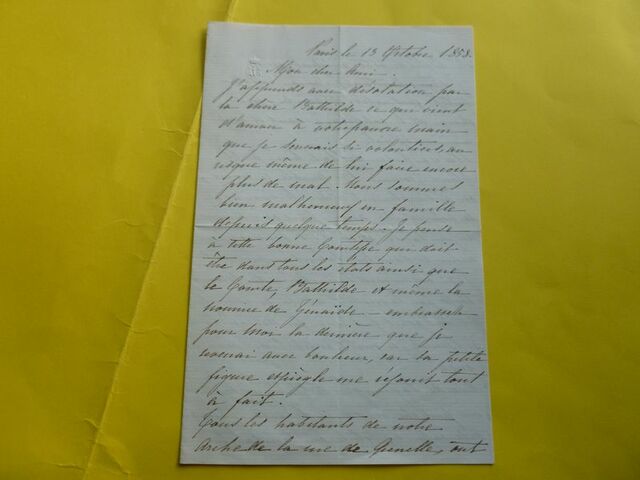 Paris le 13 Octobre 1858.
Mon cher Ami.
J'apprends avec désolation par
la chère Bathilde ce qui vient
d'arriver à votre pauvre main
que je serrerais si volontiers, au
risque même de lui faire encore
plus de mal. Nous sommes
bien malheureux en famille
depuis quelque temps. Je pense
à cette bonne Comtesse qui doit
être dans tous les états ainsi que
le Comte, Bathilde et même la
nounou de Zénaïde – embrassez
pour moi la dernière que je
reverrai avec bonheur, car la petite
figure espiègle me réjouit tout
à fait.
Tous les habitants de notre
Arche de la rue de Grenelle, ont